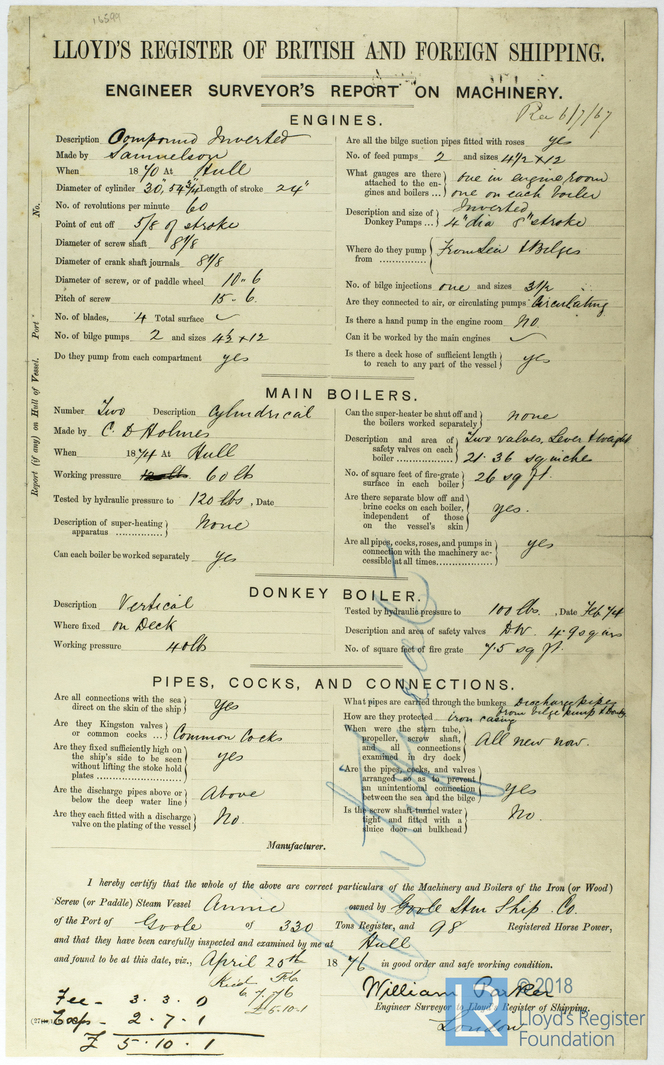 16599
LLOYD'S REGISTER OF BRITISH AND FOREIGN SHIPPING.
ENGINEER SURVEYOR'S REPORT ON MACHINERY.
Rec 6/7/67
ENGINES.
Description Compound Inverted
Made by Samuelson
When 1870 At Hull
Diameter of cylinder 30", 54¾" Length of stroke 24"
No. of revolutions per minute 60
Point of cut off 5/8 of stroke
Diameter of screw shaft 8⅞
Diameter of crank shaft journals 8⅞
Diameter of screw, or of paddle wheel 10-6
Pitch of screw 15-6.
No. of blades, 4 Total surface
No. of bilge pumps 2 and sizes 4½ × 12
Do they pump from each compartment yes
Are all the bilge suction pipes fitted with roses yes
No. of feed pumps 2 and sizes 4½ × 12
What gauges are there attached to the engines and boilers ... one in engine room
one on each boiler
Description and size of Donkey Pumps ... Inverted
4" dia 8" stroke
Where do they pump from .............. From Sea & Bilges
No. of bilge injections one and sizes 3½
Are they connected to air, or circulating pumps Circulating
Is there a hand pump in the engine room No
Can it be worked by the main engines
Is there a deck hose of sufficient length to reach to any part of the vessel yes
No. Port Report (if any) on Hull of Vessel.
MAIN BOILERS.
Number Two Description Cylindrical
Made by C. D Holmes
When 1874 At Hull
Working pressure 60 lb
Tested by hydraulic pressure to 120 lbs, Date
Description of super-heating apparatus .............. None
Can each boiler be worked separately yes
Can the super-heater be shut off and the boilers worked separately none
Description and area of safety valves on each boiler .............. Two valves, Lever & weight
21.36 sq inches
No. of square feet of fire-grate surface in each boiler 26 sq ft.
Are there separate blow off and brine cocks on each boiler, independent of those on the vessel's skin yes.
Are all pipes, cocks, roses, and pumps in connection with the machinery accessible at all times.............. yes
DONKEY BOILER.
Description Vertical
Where fixed on Deck
Working pressure 40 lb
Tested by hydraulic pressure to 100 lbs., Date Feb 74
Description and area of safety valves DW. 4.9 sq ins
No. of square feet of fire grate 7.5 sq ft.
PIPES, COCKS, AND CONNECTIONS.
Are all connections with the sea direct on the skin of the ship yes
Are they Kingston valves or common cocks ... Common Cocks
Are they fixed sufficiently high on the ship's side to be seen without lifting the stoke hold plates .............. yes
Are the discharge pipes above or below the deep water line Above
Are they each fitted with a discharge valve on the plating of the vessel No.
What pipes are carried through the bunkers Discharge pipes
from bilge pump & donkey
How are they protected iron casing
When were the stern tube, propeller, screw shaft, and all connections examined in dry dock All new now.
Are the pipes, cocks, and valves arranged so as to prevent an unintentional connection between the sea and the bilge Yes
Is the screw shaft tunnel water tight and fitted with a sluice door on bulkhead No.
Manufacturer.
I hereby certify that the whole of the above are correct particulars of the Machinery and Boilers of the Iron (or Wood)
Screw (or Paddle) Steam Vessel Annie owned by Goole Stm Ship. Co.
of the Port of Goole of 330 Tons Register, and 98 Registered Horse Power,
and that they have been carefully inspected and examined by me at Hull
and found to be at this date, viz., April 20th 1876 in good order and safe working condition.
6.7.76
£5-10-1
Fee - 3.3.0
Exps - 2.7.1
£ 5.10.1
William Parker
Engineer Surveyor to Lloyd's Register of Shipping.
London
© 2018
LR
Lloyd's Register
Foundation